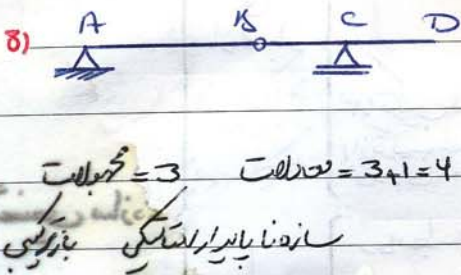 8) A B C D
مجهولات = 3 معادلات = 3+1=4
سازه ناپایدار استاتیکی